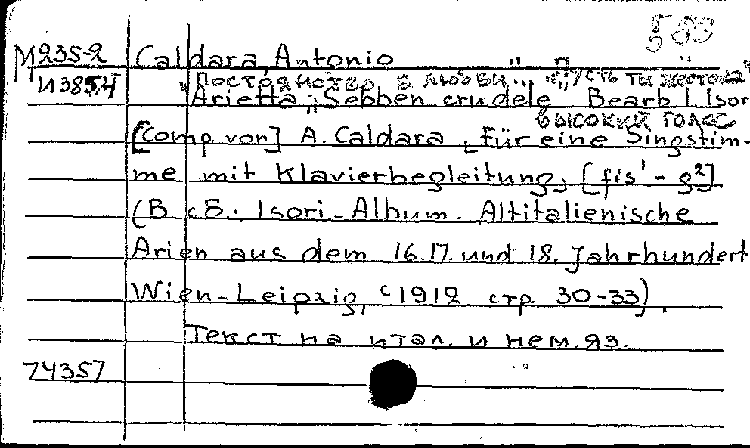 593
М235-2 Caldara, Antonio
И385И "Постоянство в любви..." "Пусть ты жестока"
Arietta "Sebben crudele" Bearb. I. Isori
высокий голос
[Comp von] A. Caldara, für eine Singstim-
me mit Klavierbegleitung, [fis¹ - g²]
(В сб.: Isori-Album. Altitalienische
Arien aus dem 16. 17. und 18. Jahrhundert
Wien-Leipzig, c1912 стр 30-33).
Текст на итал. и нем. яз.
74357